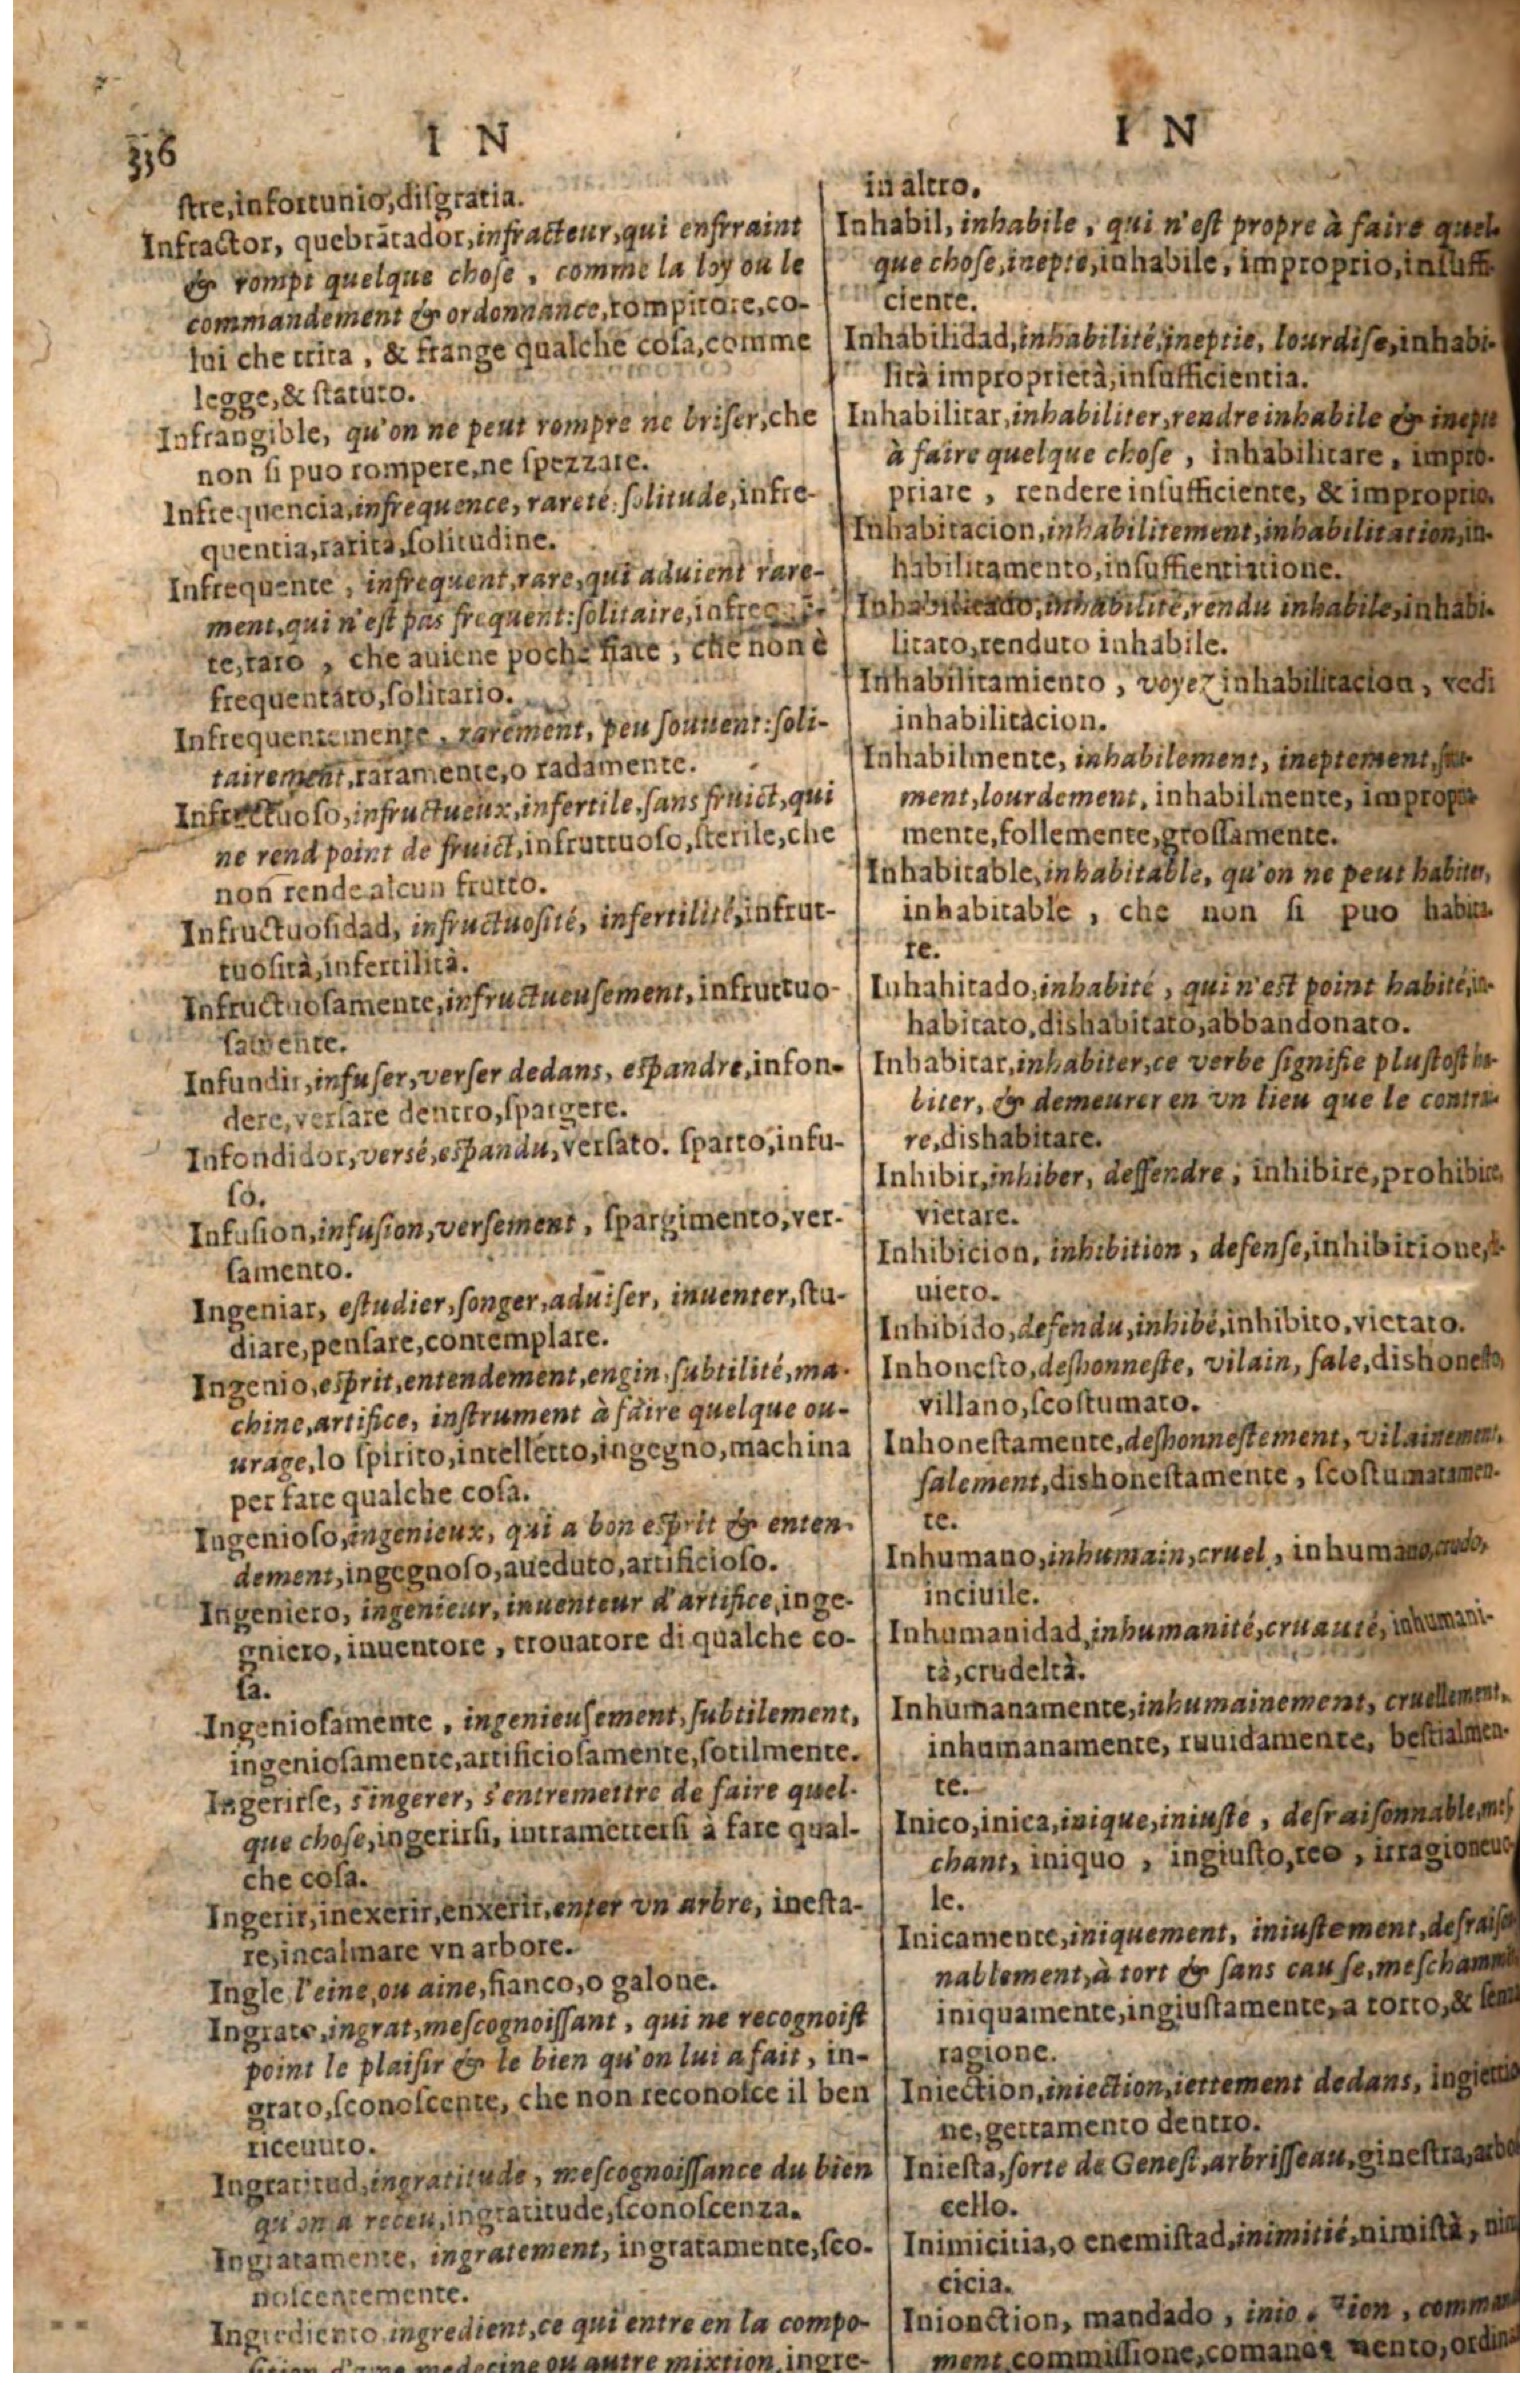 336
I N
ſtre,infortunio,diſgratia.
Infractor, quebrãtador,infracteur,qui enfrraint
& rompt quelque choſe , comme la loy ou le
commandement & ordonnance,rompitore,co-
lui che trita , & frange qualche coſa,comme
legge,& ſtatuto.
Infrangible, qu'on ne peut rompre ne briſer,che
non ſi puo rompere,ne ſpezzare.
Infrequencia,infrequence, rareté:ſolitude,infre-
quentia,rarità,ſolitudine.
Infrequente , infrequent,rare,qui aduient rare-
ment,qui n'eſt pas frequent:ſolitaire,
te,raro , che auiene poche fiate , che non è
frequentato,ſolitario.
Infrequentemente , rarement, peu ſouuent:ſoli-
tairement,raramente,o radamente.
Infructuoſo,infructueux,infertile,ſans fruict,qui
ne rend point de fruict,infruttuoſo,ſterile,che
non rende alcun frutto.
Infructuoſidad, infructuoſité, infertilité,infrut-
tuoſità,infertilità.
Infructuoſamente,infructueuſement, infruttuo-
ſamente.
Infundir,infuſer,verſer dedans, eſpandre,infon-
dere,verſare dentro,ſpargere.
Infondidor,verſé,eſpandu,verſato. ſparto,infu-
ſo.
Infuſion,infuſion,verſement , ſpargimento,ver-
ſamento.
Ingeniar, eſtudier,ſonger,aduiſer, inuenter,ſtu-
diare,penſare,contemplare.
Ingenio,eſprit,entendement,engin,ſubtilité,ma-
chine,artifice, inſtrument à faire quelque ou-
urage,lo ſpirito,intelletto,ingegno,machina
per fare qualche coſa.
Ingenioſo,ingenieux, qui a bon eſprit & enten-
dement,ingegnoſo,aueduto,artificioſo.
Ingeniero, ingenieur,inuenteur d'artifice,inge-
gniero,inuentore , trouatore di qualche co-
ſa.
Ingenioſamente , ingenieuſement,ſubtilement,
ingenioſamente,artificioſamente,ſotilmente.
Ingerirſe, s'ingerer, s'entremettre de faire quel-
que choſe,ingerirſi, intrametterſi à fare qual-
che coſa.
Ingerir,inexerir,enxerir,enter vn arbre, ineſta-
re,incalmare vn arbore.
Ingle l'eine,ou aine,fianco,o galone.
Ingrato,ingrat,meſcognoiſſant , qui ne recognoiſt
point le plaiſir & le bien qu'on lui a fait , in-
grato,ſconoſcente, che non reconoſce il ben
riceuuto.
Ingratitud,ingratitude , meſcognoiſſance du bien
qu'on a receu,ingratitude,ſconoſcenza.
Ingratamente, ingratement, ingratamente,ſco-
noſcentemente.
Ingrediento,ingredient,ce qui entre en la compo-
ſition d'une medecine ou autre mixtion,ingre-
I N
in altro.
Inhabil, inhabile , qui n'eſt propre à faire quel-
que choſe,inepte,inhabile, improprio,inſuffi-
ciente.
Inhabilidad,inhabilité,ineptie, lourdiſe,inhabi-
lità improprietà,inſufficientia.
Inhabilitar,inhabiliter,rendre inhabile & inepte
à faire quelque choſe , inhabilitare , impro-
priare , rendere inſufficiente, & improprio.
Inhabitacion,inhabilitement,inhabilitation,in-
habilitamento,inſuffientitione.
Inhabilitado,inhabilité,rendu inhabile,inhabi-
litato,renduto inhabile.
Inhabilitamiento , voyez inhabilitacion , vedi
inhabilitacion.
Inhabilmente, inhabilement, ineptement,
ment,lourdement, inhabilmente,
mente,follemente,groſſamente.
Inhabitable,inhabitable, qu'on ne peut habiter,
inhabitable , che non ſi puo habita-
re.
Inhahitado,inhabité , qui n'eſt point habité,in-
habitato,dishabitato,abbandonato.
Inhabitar,inhabiter,ce verbe ſignifie pluſtoſt ha-
biter, & demeurer en vn lieu que le contrai-
re,dishabitare.
Inhibir,inhiber, deffendre , inhibire,prohibire,
vietare.
Inhibicion, inhibition , defenſe,inhibitione,
uieto.
Inhibido,defendu,inhibé,inhibito,vietato.
Inhoneſto,deshonneſte, vilain, ſale,dishoneſto,
villano,ſcoſtumato.
Inhoneſtamente,deshonneſtement, vilainement,
ſalement,dishoneſtamente , ſcoſtumatamen-
te.
Inhumano,inhumain,cruel , inhumano,crudo,
inciuile.
Inhumanidad,inhumanité,cruauté, inhumani-
tà,crudeltà.
Inhumanamente,inhumainement, cruellement,
inhumanamente, ruuidamente, beſtialmen-
te.
Inico,inica,inique,iniuſte , deſraiſonnable,meſ-
chant, iniquo , ingiuſto,reo , irragioneuo-
le.
Inicamente,iniquement, iniuſtement,deſraiſon-
nablement,à tort & ſans cauſe,
iniquamente,ingiuſtamente, a torto,& ſenza
ragione.
Iniection,iniection,iettement dedans, ingiettio-
ne,gettamento dentro.
Inieſta,ſorte de Geneſt,arbriſſeau,gineſtra,arbo-
cello.
Inimicitia,o enemiſtad,inimitié,nimiſtà ,
cicia.
Inionction, mandado , , 
ment,commiſſione,